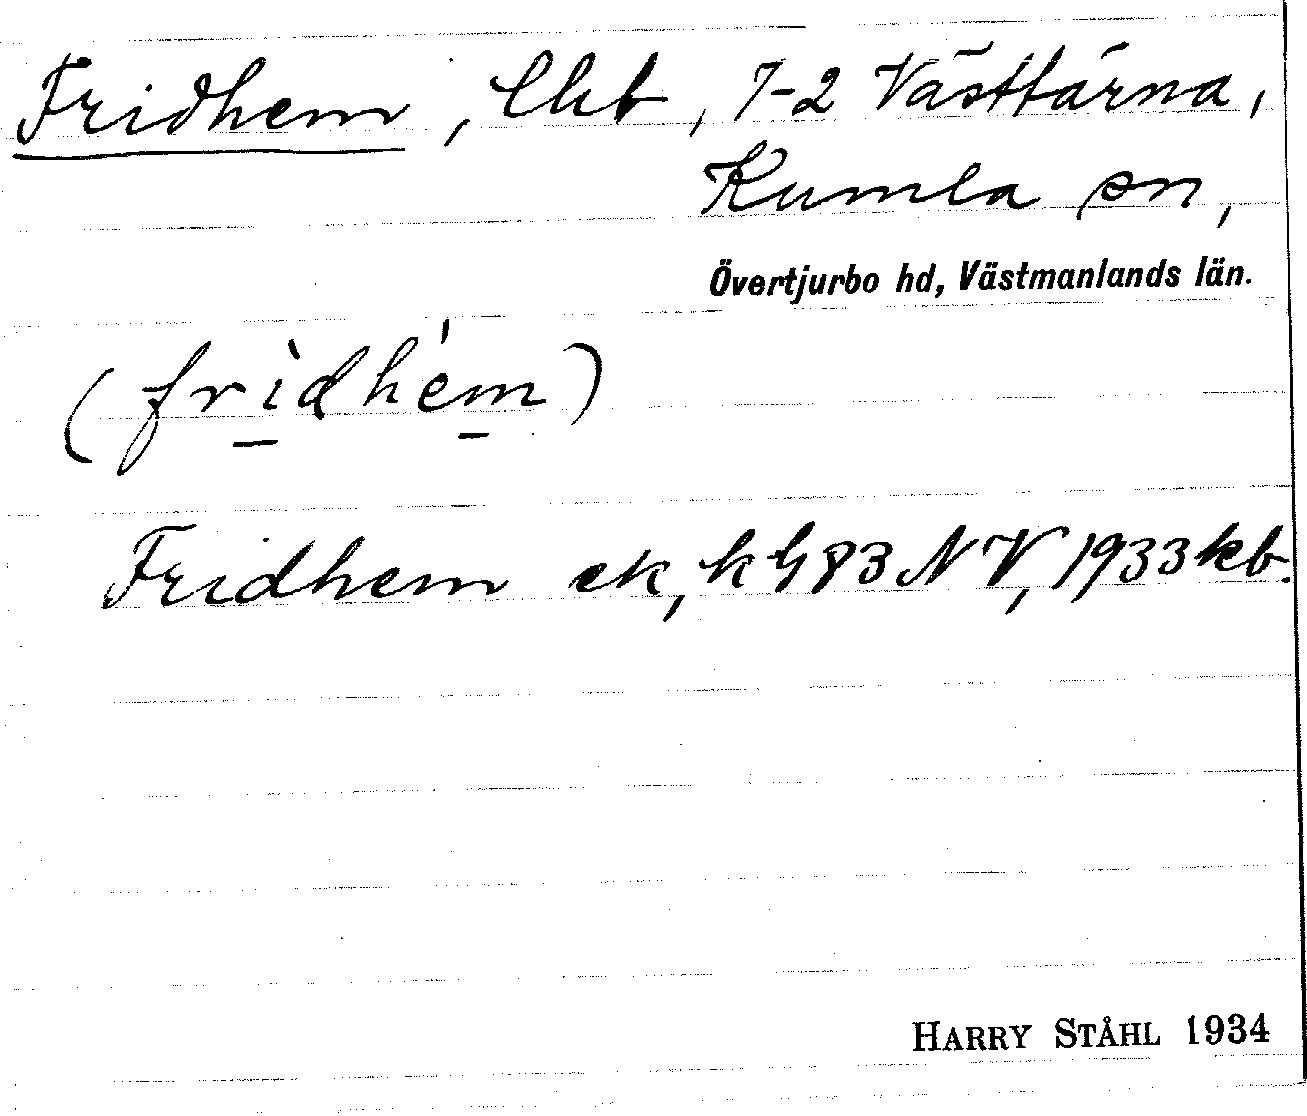 Fridhem, lht, 7-2 Västtärna,
Kumla sn,
Övertjurbo hd, Västmanlands län.
(fri̱dhém̱)
Fridhem ek, 83 NV, 1933 kb.
HARRY STÅHL 1934